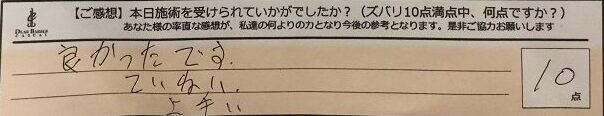 【ご感想】本日施術を受けられていかがでしたか？（ズバリ10点満点中、何点ですか？）
あなた様の率直な感想が、私達の何よりの力となり今後の参考となります。是非ご協力お願いします
DEAR BARBER
良かったです。
ていねい。
上手い
10
点